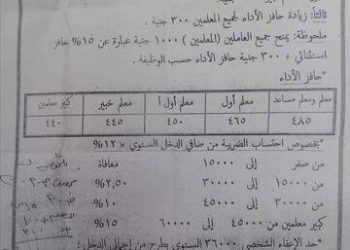 ثالثاً: زيادة حافز الأداء لجميع المعلمين ٣٠٠ جنية .
ملحوظة: يمنح جميع العاملين (المعلمين ) ١٠٠٠ جنية عبارة عن ١٥% حافز
استثنائي + ٣٠٠ جنية حافز الأداء حسب الوظيفة .
*حافز الأداء
معلم ومعلم مساعد معلم أول معلم أول أ معلم خبير كبير معلمين
٤٨٥ ٤٦٥ ٤٥٠ ٤٤٥ ٤٤٠
*بخصوص احتساب الضريبة من صافي الدخل السنوي × ١٢%
من صفر إلى ١٥٠٠٠ معافاة
من ١٥٠٠٠ إلى ٣٠٠٠٠ ٢,٥٠%
من ٣٠٠٠٠ إلى ٤٥٠٠٠ ١٠%
كبير معلمين من ٤٥٠٠٠ إلى ٦٠٠٠٠ ١٥%
*حد الإعفاء الشخصي ٣٦٠٠٠ السنوي يطرح من إجمالي الدخل :